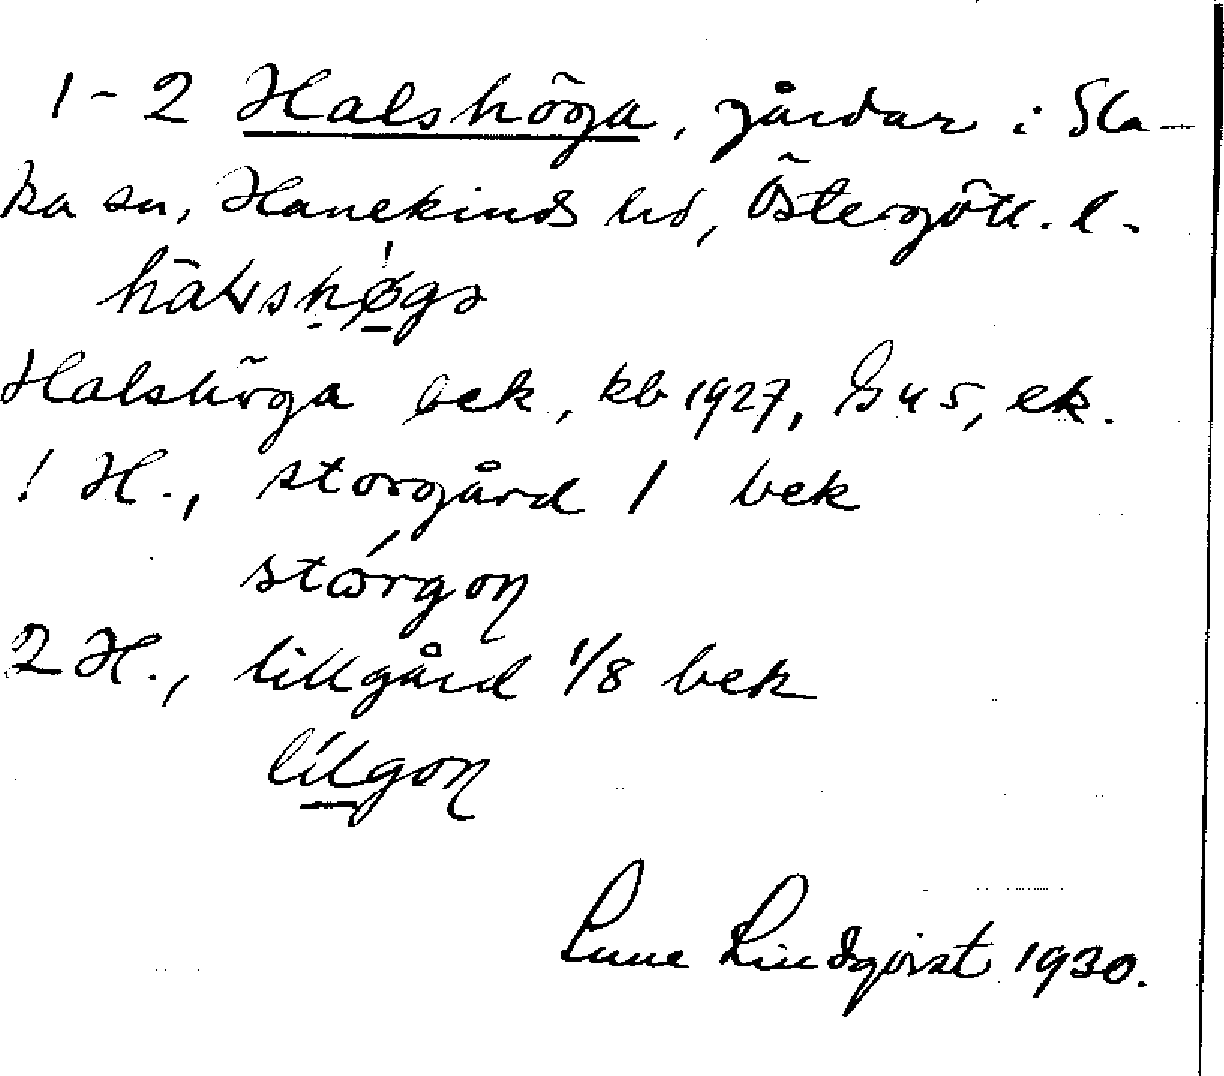 1-2 Halshöga, gårdar i Sla-
ka sn, Hanekinds hd, Östergötl. l.
Halshöga bek, kb 1927, GuS, ek.
1 H., storgård 1 bek
stórgon
2 H., lillgård 1/8 bek
lílgon
Rune Lindqvist 1930.